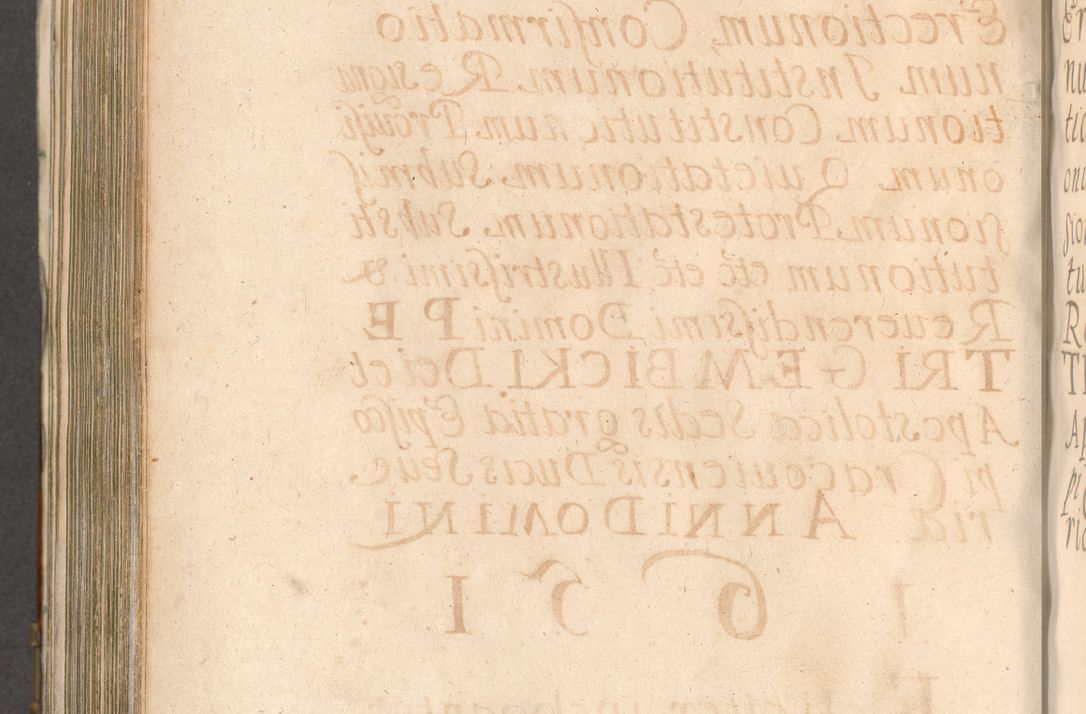 Erectionum, Confirmatio
num. Institutionum. Resigna
tionum. Constitutionum. Provisi
onum. Quietationum. Submiſ
sionum. Protestationum. Substi
tutionum etc̃ etc̃ etc̃ Illustriſsimi &
Reuerendiſsimi Domini PE
TRI GEMBICKI Dei et
Apostolica Sedis gratia Episco
pi Cracouiensis Ducis Seue
riæ ANNI DOMINI
1 6 5 1